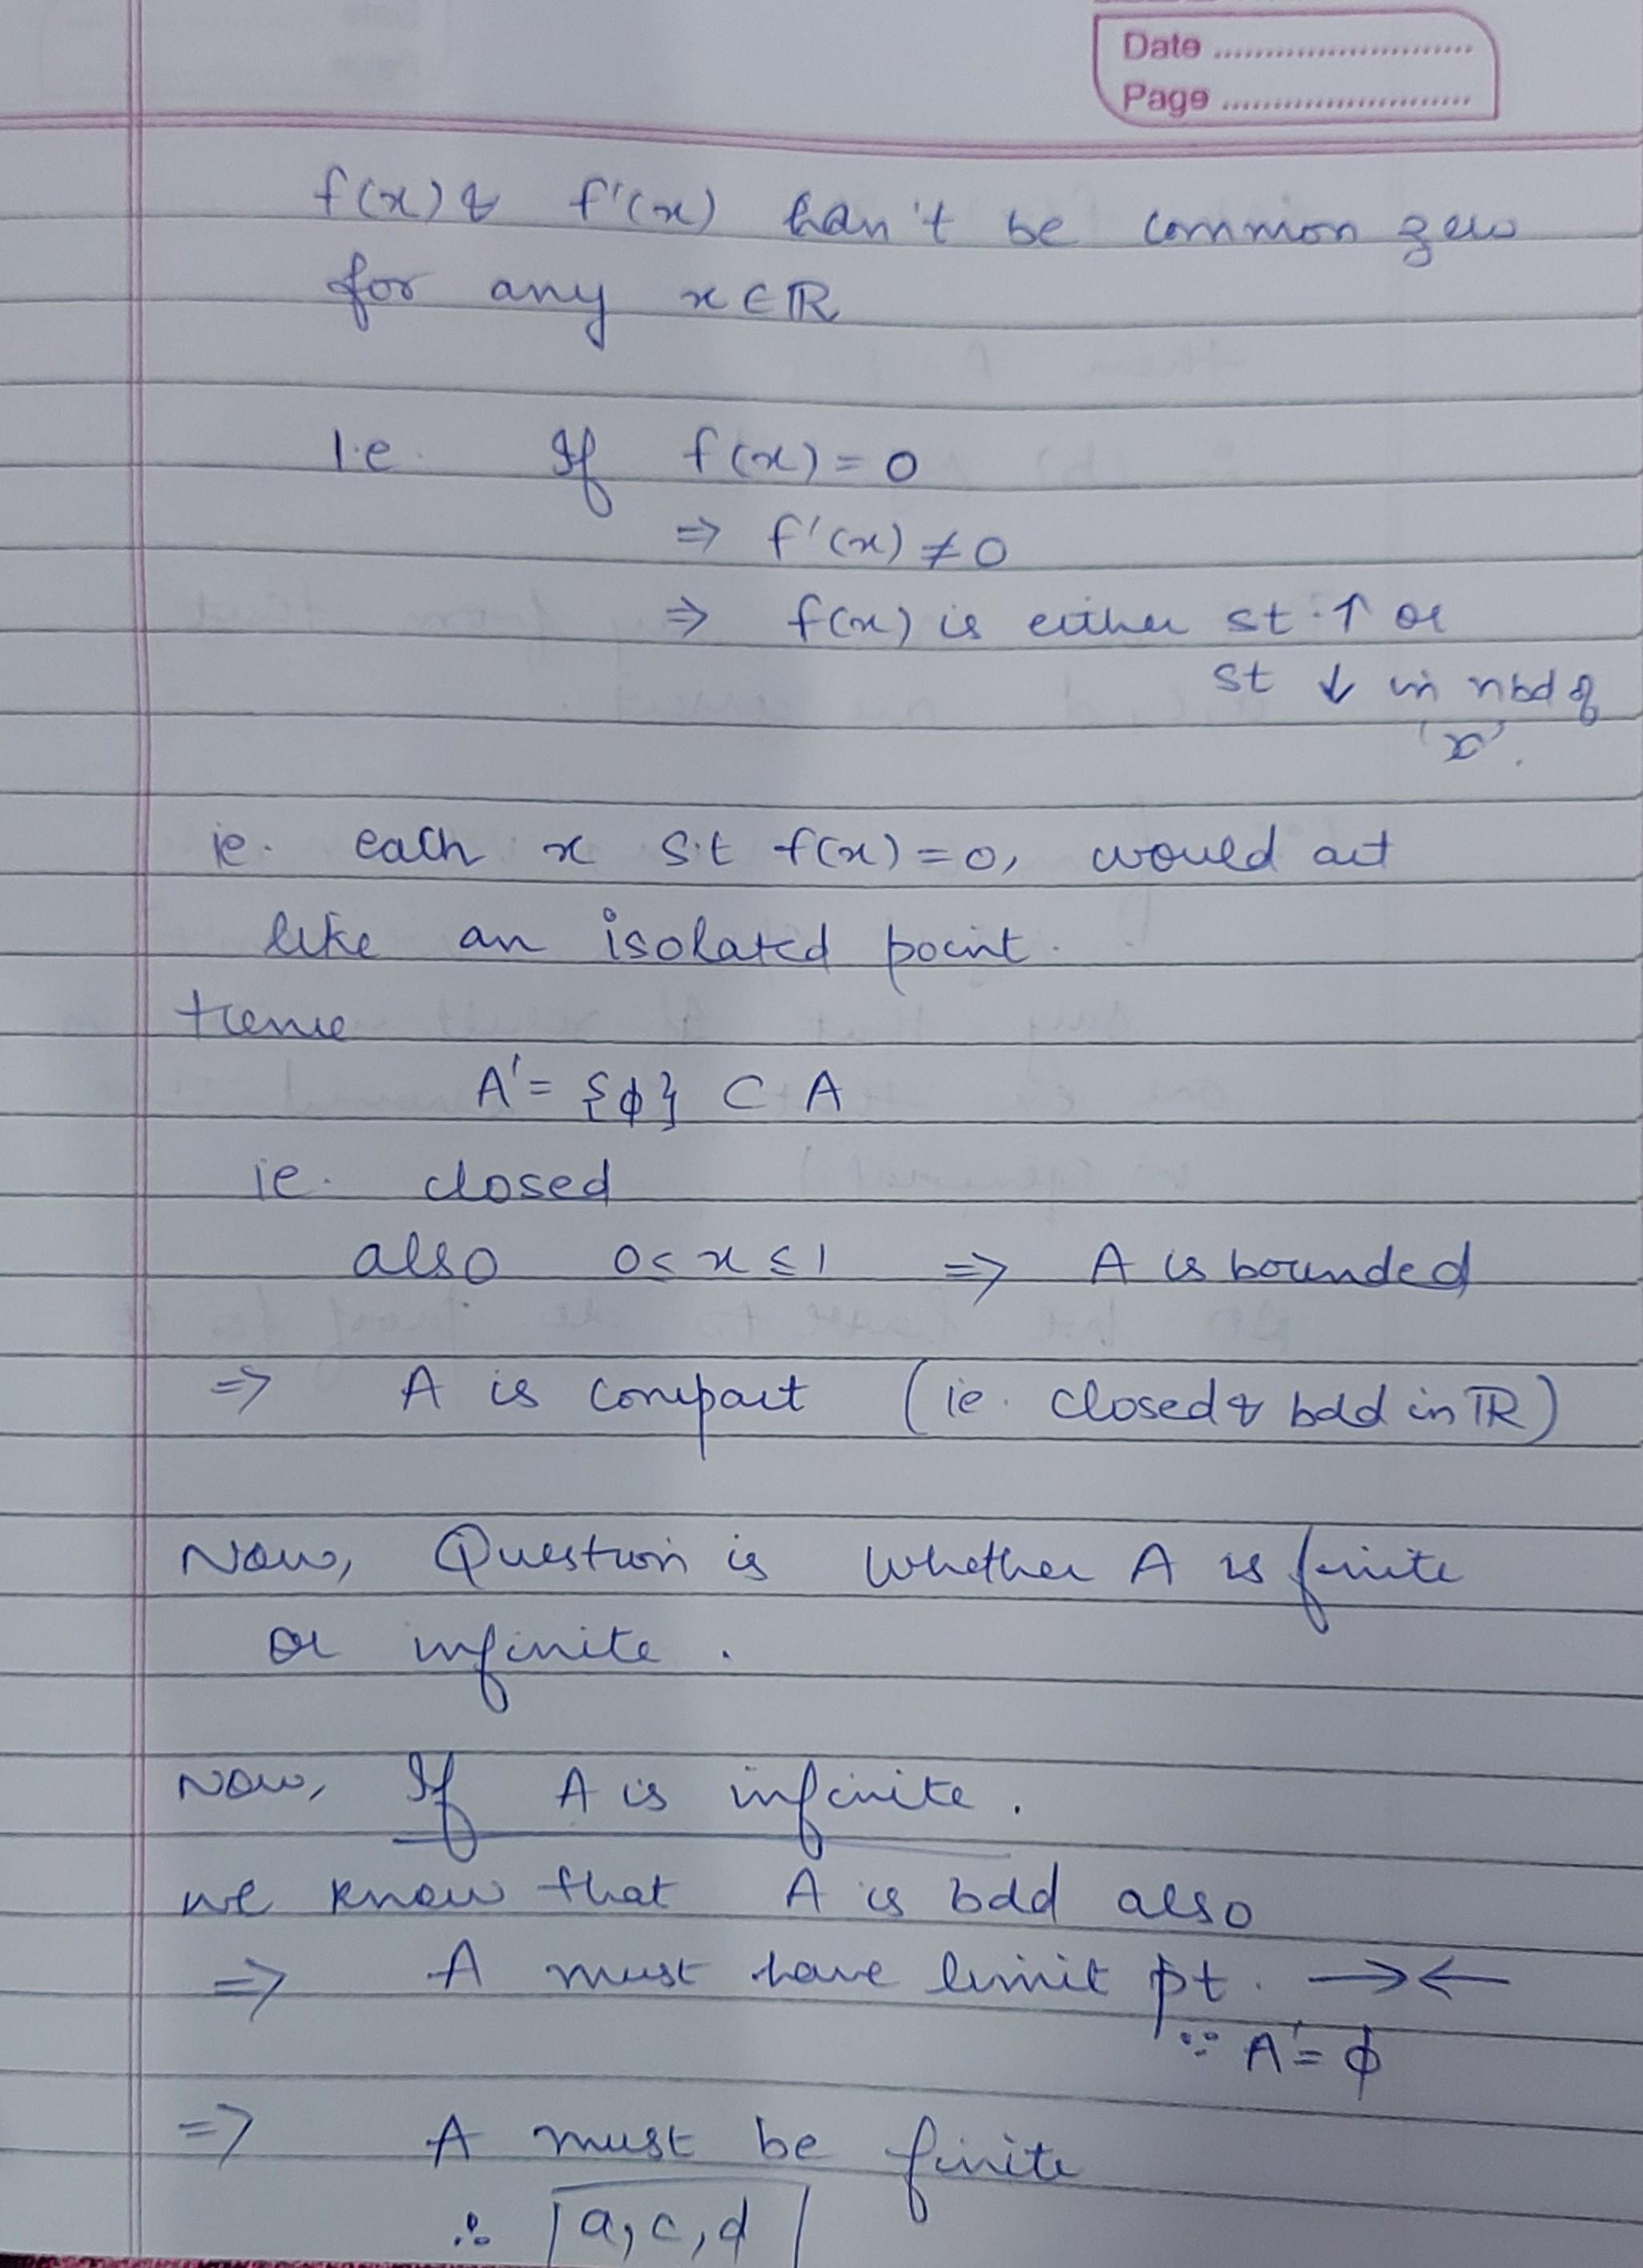 Date
Page
f(x) & f'(x) han't be common zero
for any x ∈ ℝ
I.e. If f(x) = 0
⇒ f'(x) ≠ 0
⇒ f(x) is either st. ↑ or
st ↓ in nbd of
'x'.
ie. each x s.t f(x) = 0, would act
like an isolated point.
Hence
A' = {ϕ} ⊂ A
ie. closed
also 0 < x ≤ 1 ⇒ A is bounded
⇒ A is compact (ie. closed & bdd in ℝ)
Now, Question is whether A is finite
or infinite.
Now, If A is infinite.
we know that A is bdd also
⇒ A must have limit pt. →←
∵ A' = ϕ
⇒ A must be finite
∴ a, c, d